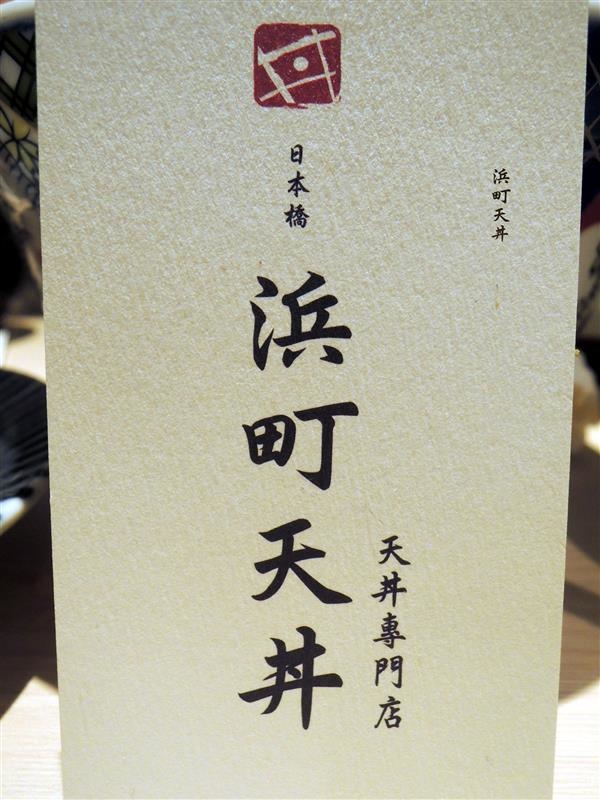 日本橋
浜町天丼
天丼專門店
浜町天丼